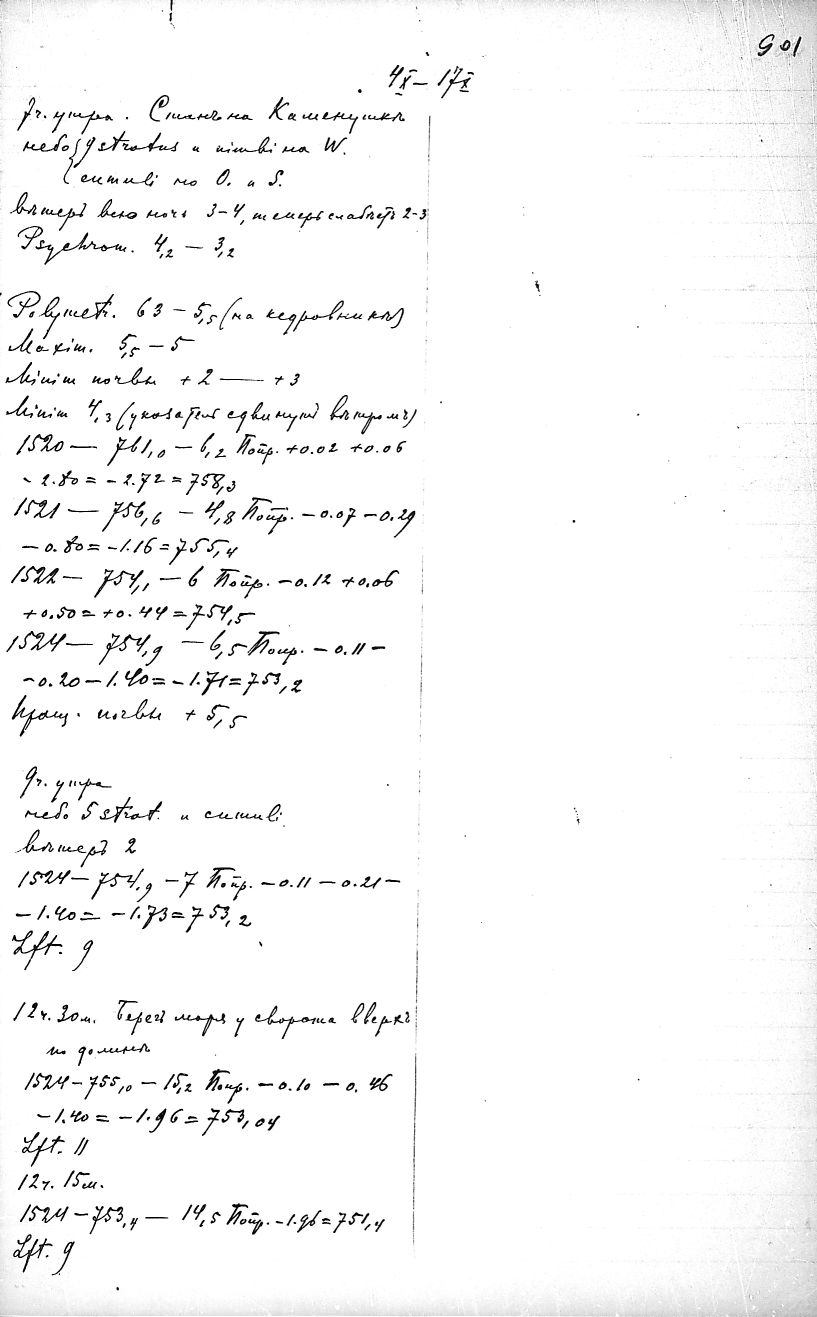 901
4X – 17X
7ч. утра. Станъ на Каменушкѣ
небо { 9 stratus и nimbi на W.
{ cumuli на O. и S.
вѣтеръ всю ночь 3-4, теперь слабѣетъ 2-3
Psychrom. 4,2 — 3,2
Polymetr. 63 – 5,5 (на кедровникѣ)
Maxim. 5,5 – 5
Minim почвы + 2 — + 3
Minim 4,3 (указатель сдвинутъ вѣтромъ)
1520 — 761,0 – 6,2 Попр. +0.02 +0.06
- 2.80 = - 2.72 = 758,3
1521 — 756,6 – 4,8 Попр. – 0.07 – 0.29
– 0.80 = - 1.16 = 755,4
1522 — 754,1 – 6 Попр. – 0.12 +0.06
+0.50 = +0.44 = 754,5
1524 — 754,9 – 6,5 Попр. – 0.11 –
– 0.20 – 1.40 = – 1.71 = 753,2
Пращ. почвы + 5,5
9ч. утра
небо 5 strat. и cumuli
вѣтеръ 2
1524 — 754,9 – 7 Попр. – 0.11 – 0.21 –
– 1.40 = – 1.73 = 753,2
Lft. 9
12ч. 30м. Берегъ моря у сворота вверхъ
по долинѣ
1524 – 755,0 – 15,2 Попр. – 0.10 – 0.46
– 1.40 = – 1.96 = 753,04
Lft. 11
12ч. 15м.
1524 – 753,4 — 14,5 Попр. – 1.96 = 751,4
Lft. 9